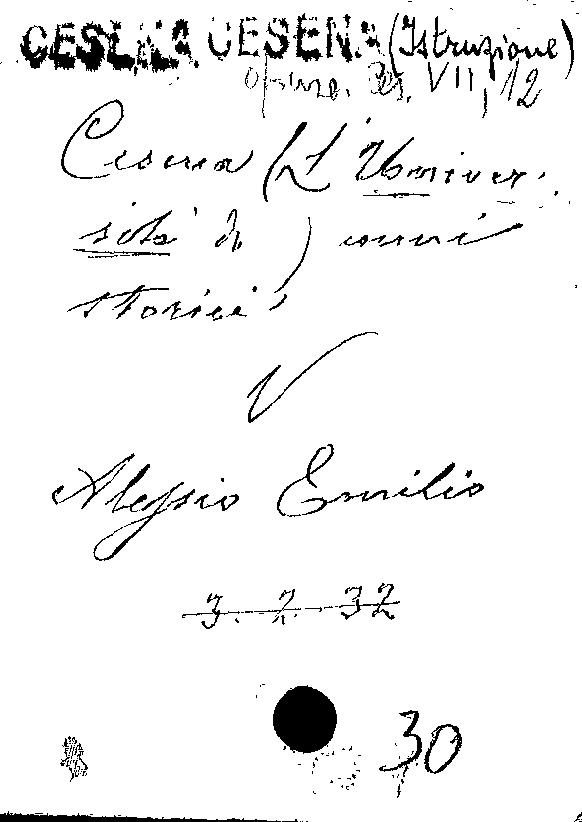 CESENA CESENA (Istruzione)
opusc. Ces. VII, 12
Cesena (L'Univer-
sità di) cenni
storici
V
Alessio Emilio
3. 2. 32
30